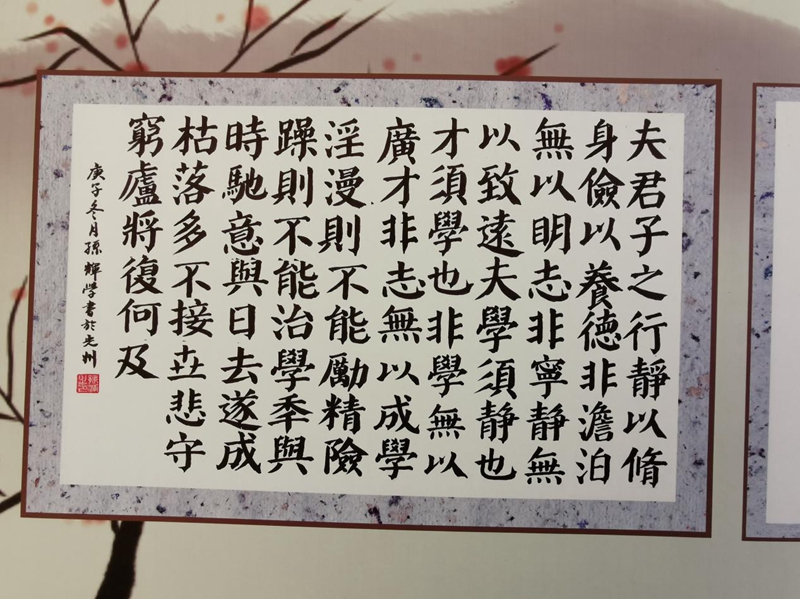 夫君子之行靜以脩
身儉以養德非澹泊
無以明志非寧靜無
以致遠夫學須靜也
才須學也非學無以
廣才非志無以成學
淫漫則不能勵精險
躁則不能治學秊與
時馳意與日去遂成
枯落多不接卋悲守
窮廬將復何及
庚子冬月孫輝學書於光州